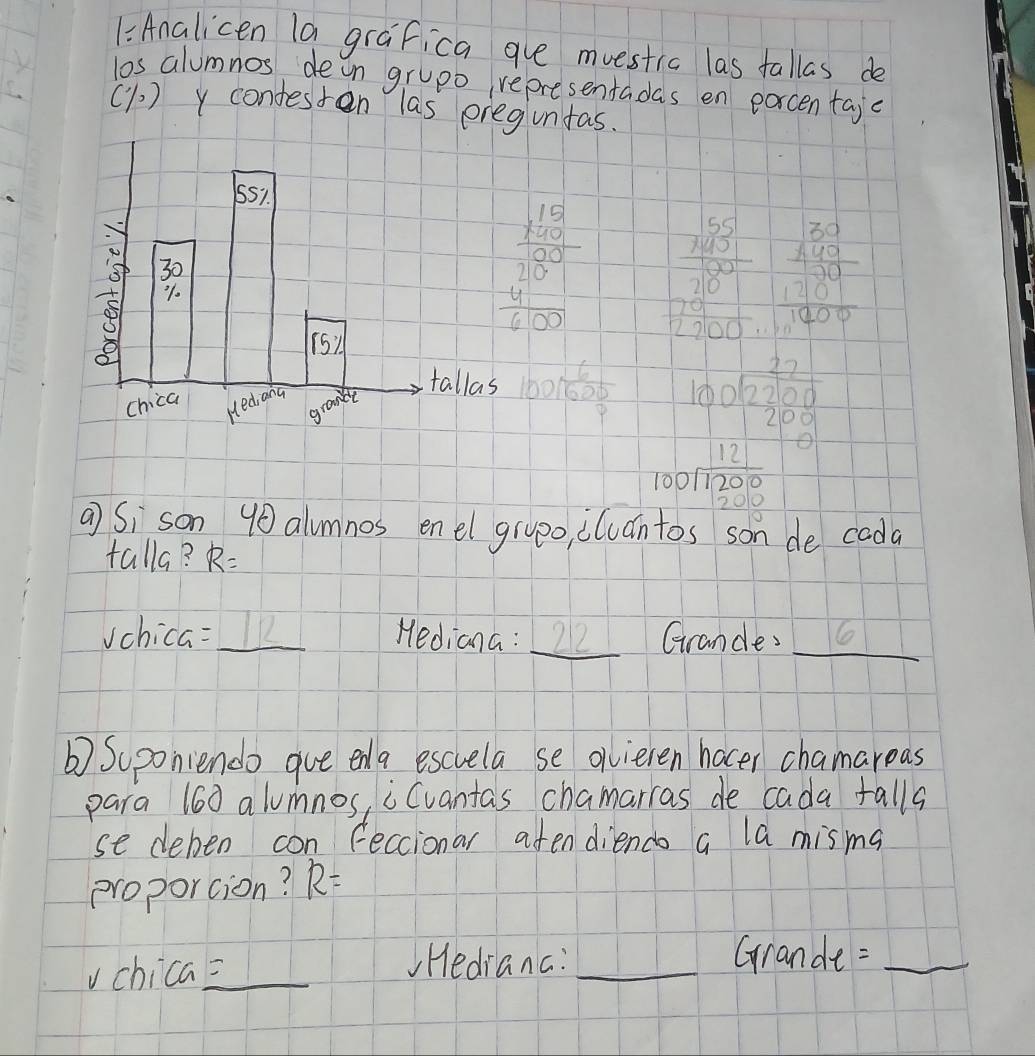 1: Analicen la gráfica que muestra las tallas de
los alumnos de un grupo, representadas en porcentaje
(%) y contestan las preguntas.
Porcentaje %
30
%
55%
15%
chica
Mediana
grande
tallas
15
x40
00
20
4
600
55
x40
00
20
20
2200
30
x40
00
120
6
100√600
0
22
100√2200
200
0
12
100√1200
200
0
a) Si son 40 alumnos en el grupo, ¿Cuántos son de cada
talla? R=
√chica= 12 Mediana: 22 Grande: 6
b) Suponiendo que en la escuela se quieren hacer chamareas
para 160 alumnos, ¿Cuantas chamarras de cada talla
se deben con feccionar atendiendo a la misma
proporcion? R=
√chica= Mediana: Grande=